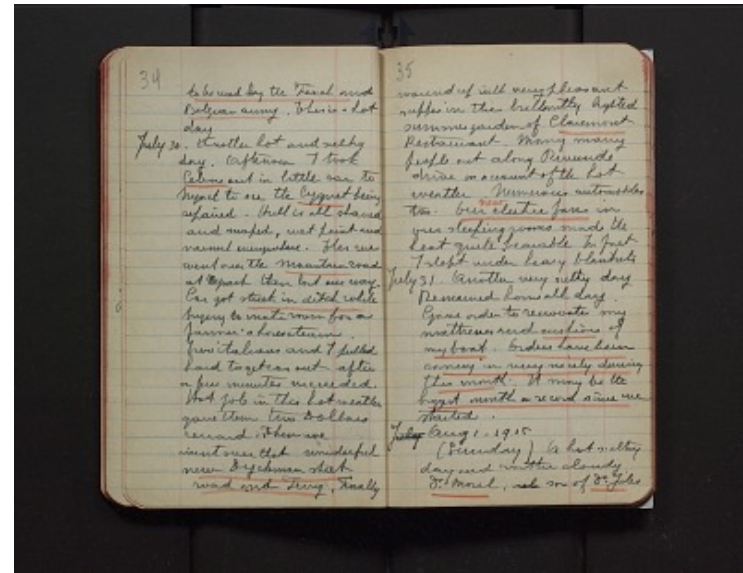 34
to be used by the French and
Belgian army. This is a hot
day
July 30. Another hot and sultry
day. Afternoon I took
out in little car to
Nyack to see the Cygnet being
repaired. Hull is all shaved
and scraped, wet paint and
varnish everywhere. Then we
went over the Mountain road
at Nyack then lost our way.
Car got stuck in ditch while
trying to make room for a
farmer's horse team.
Five Italians and I pulled
hard to get car out after
a few minutes succeeded.
Hot job in this hot weather
gave them two Dollars
reward. Then we
went over that wonderful
new Dyckman street
road and Ferry, Finally
35
wound up with very pleasant
supper in the brilliantly lighted
summer garden of Claremont
Restaurant. Many many
people out along Riverside
drive on account of the hot
weather. Numerous automobiles
too. Our new electric fans in
our sleeping rooms made the
heat quite bearable. In fact
I slept under heavy blankets
July 31. Another very sultry day
Remained home all day.
Gave order to renovate my
mattresses and cushions of
my boat. Orders have been
coming in very nicely during
this month. It may be the
biggest month a record since we
started.
July Aug 1. 1915
(Sunday) A hot sultry
day and weather cloudy.
Dr. Morel, son of Dr. Jules